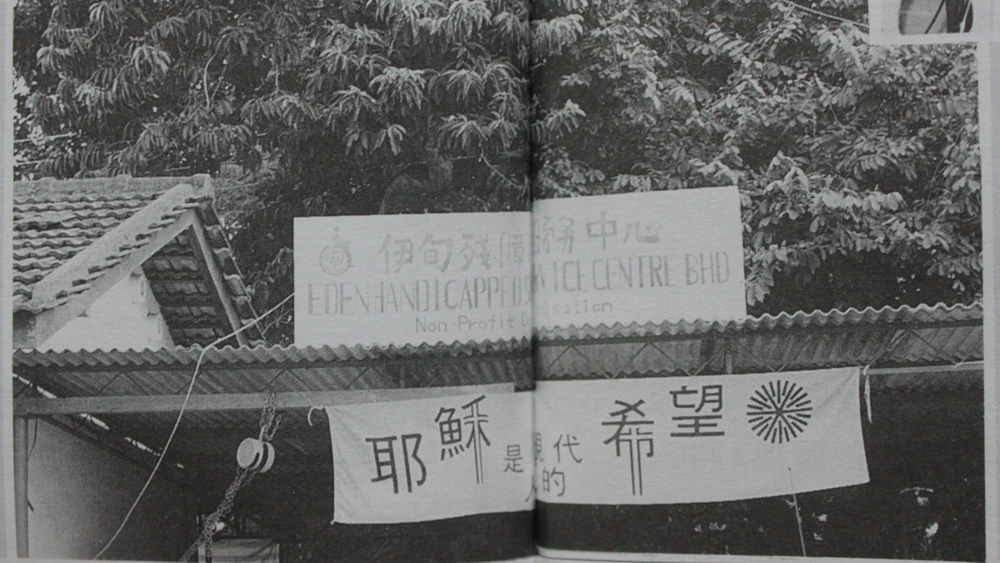 伊甸殘障務中心
EDEN HANDICAPPED CENTRE BHD
Non-Profit
耶穌是現代人的希望